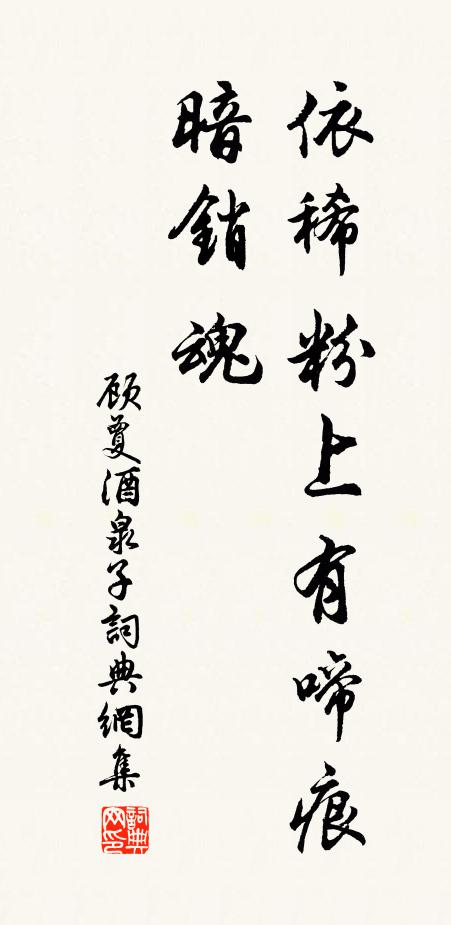 依稀粉上有啼痕
暗銷魂
顾敻酒泉子詞典網集
詞典網印